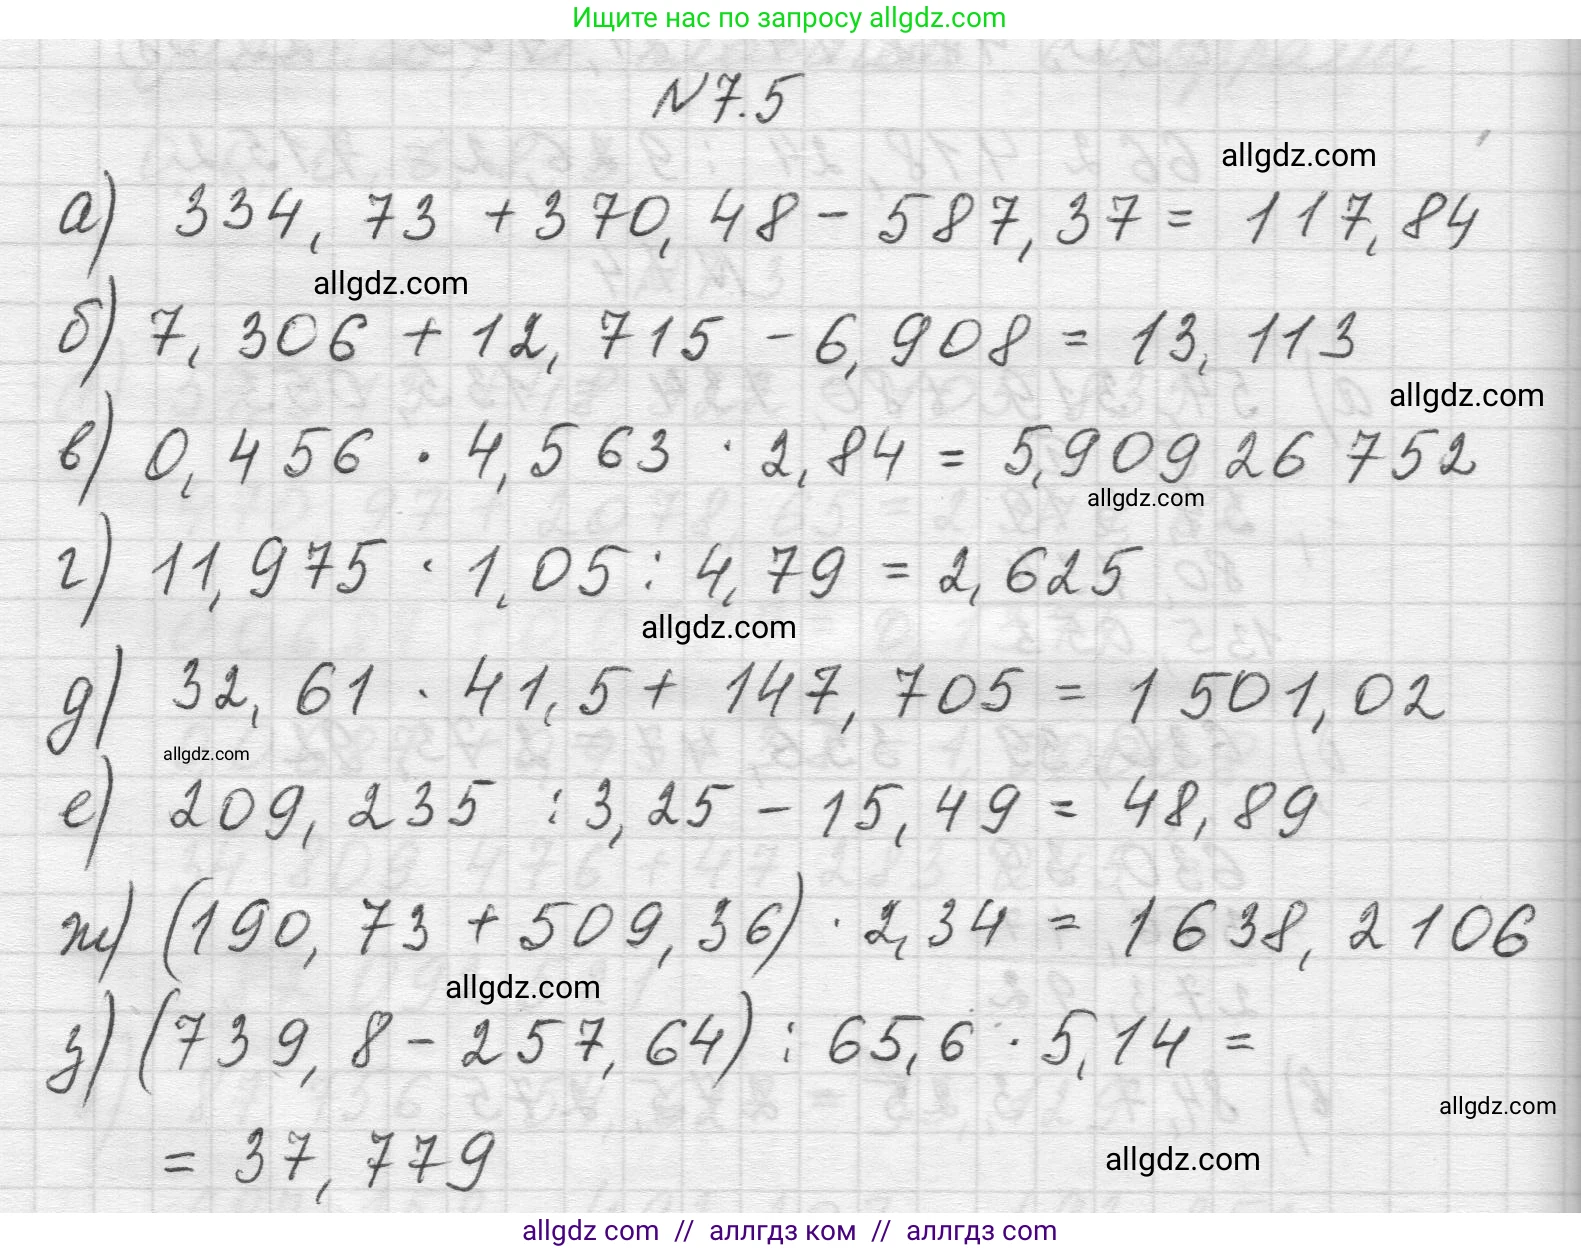 Ищите нас по запросу allgdz.com
N 7.5
allgdz.com
а) 334,73 + 370,48 - 587,37 = 117,84
allgdz.com
б) 7,306 + 12,715 - 6,908 = 13,113
allgdz.com
в) 0,456 · 4,563 · 2,84 = 5,90926752
allgdz.com
г) 11,975 · 1,05 : 4,79 = 2,625
allgdz.com
д) 32,61 · 41,5 + 147,705 = 1501,02
allgdz.com
е) 209,235 : 3,25 - 15,49 = 48,89
ж) (190,73 + 509,36) · 2,34 = 1638,2106
allgdz.com
з) (739,8 - 257,64) : 65,6 · 5,14 =
allgdz.com
= 37,779
allgdz.com
allgdz com // аллгдз ком // аллгдз com